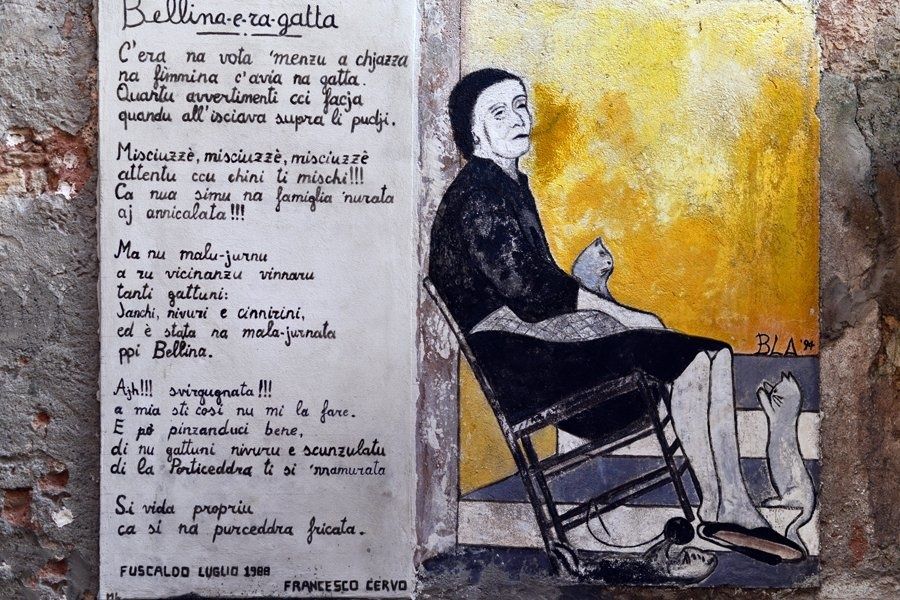 Bellina-e-ra-gatta
C'era na vota 'menzu a chjazza
na fimmina c'avia na gatta.
Quantu avvertimenti cci facja
quandu all'isciava supra li pudji.
Misciuzzè, misciuzzè, misciuzzè
attentu ccu chini ti mischi!!!
Ca nua simu na famiglia 'nurata
aj annicalata!!!
Ma nu malu-jurnu
a ru vicinanzu vinnaru
tanti gattuni:
Janchi, nivuri e cinnirini,
ed è stata na mala-jurnata
ppi Bellina.
Ajh!!! svirgugnata!!!
a mia sti così nu mi la fare.
E po pinzanduci bene,
di nu gattuni nivuru e scunzulatu
di la Porticeddra ti si 'nnamurata
Si vida propriu
ca si na purceddra fricata.
FUSCALDO LUGLIO 1988
FRANCESCO CERVO
BLA '94